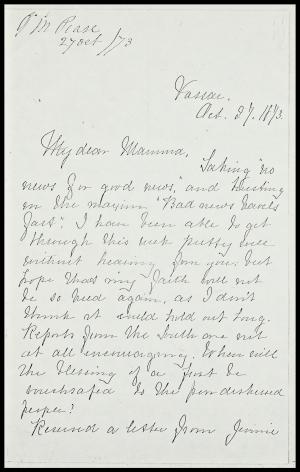 J M Pease
27 Oct /73
Vassar.
Oct. 27. 1873.
My dear Mamma,
Taking "no
news for good news," and trusting
on the maxim "Bad news travels
fast". I have been able to get
through this week pretty well
without hearing from you: but
hope that my faith will not
be so tried again, as I don't
think it could hold out long.
Reports from the South are not
at all encouraging. When will
the blessing of a frost be
vouchsafed to the poor distressed
people?
Received a letter from Jennie